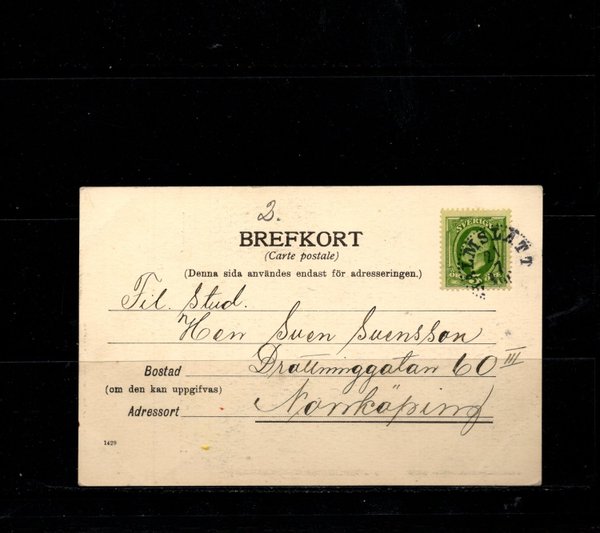 2.
BREFKORT
(Carte postale)
(Denna sida användes endast för adresseringen.)
SVERIGE
Fil. Stud.
Herr Sven Svensson
Bostad Drottninggatan 60 III
(om den kan uppgifvas)
Adressort Norrköping
1429